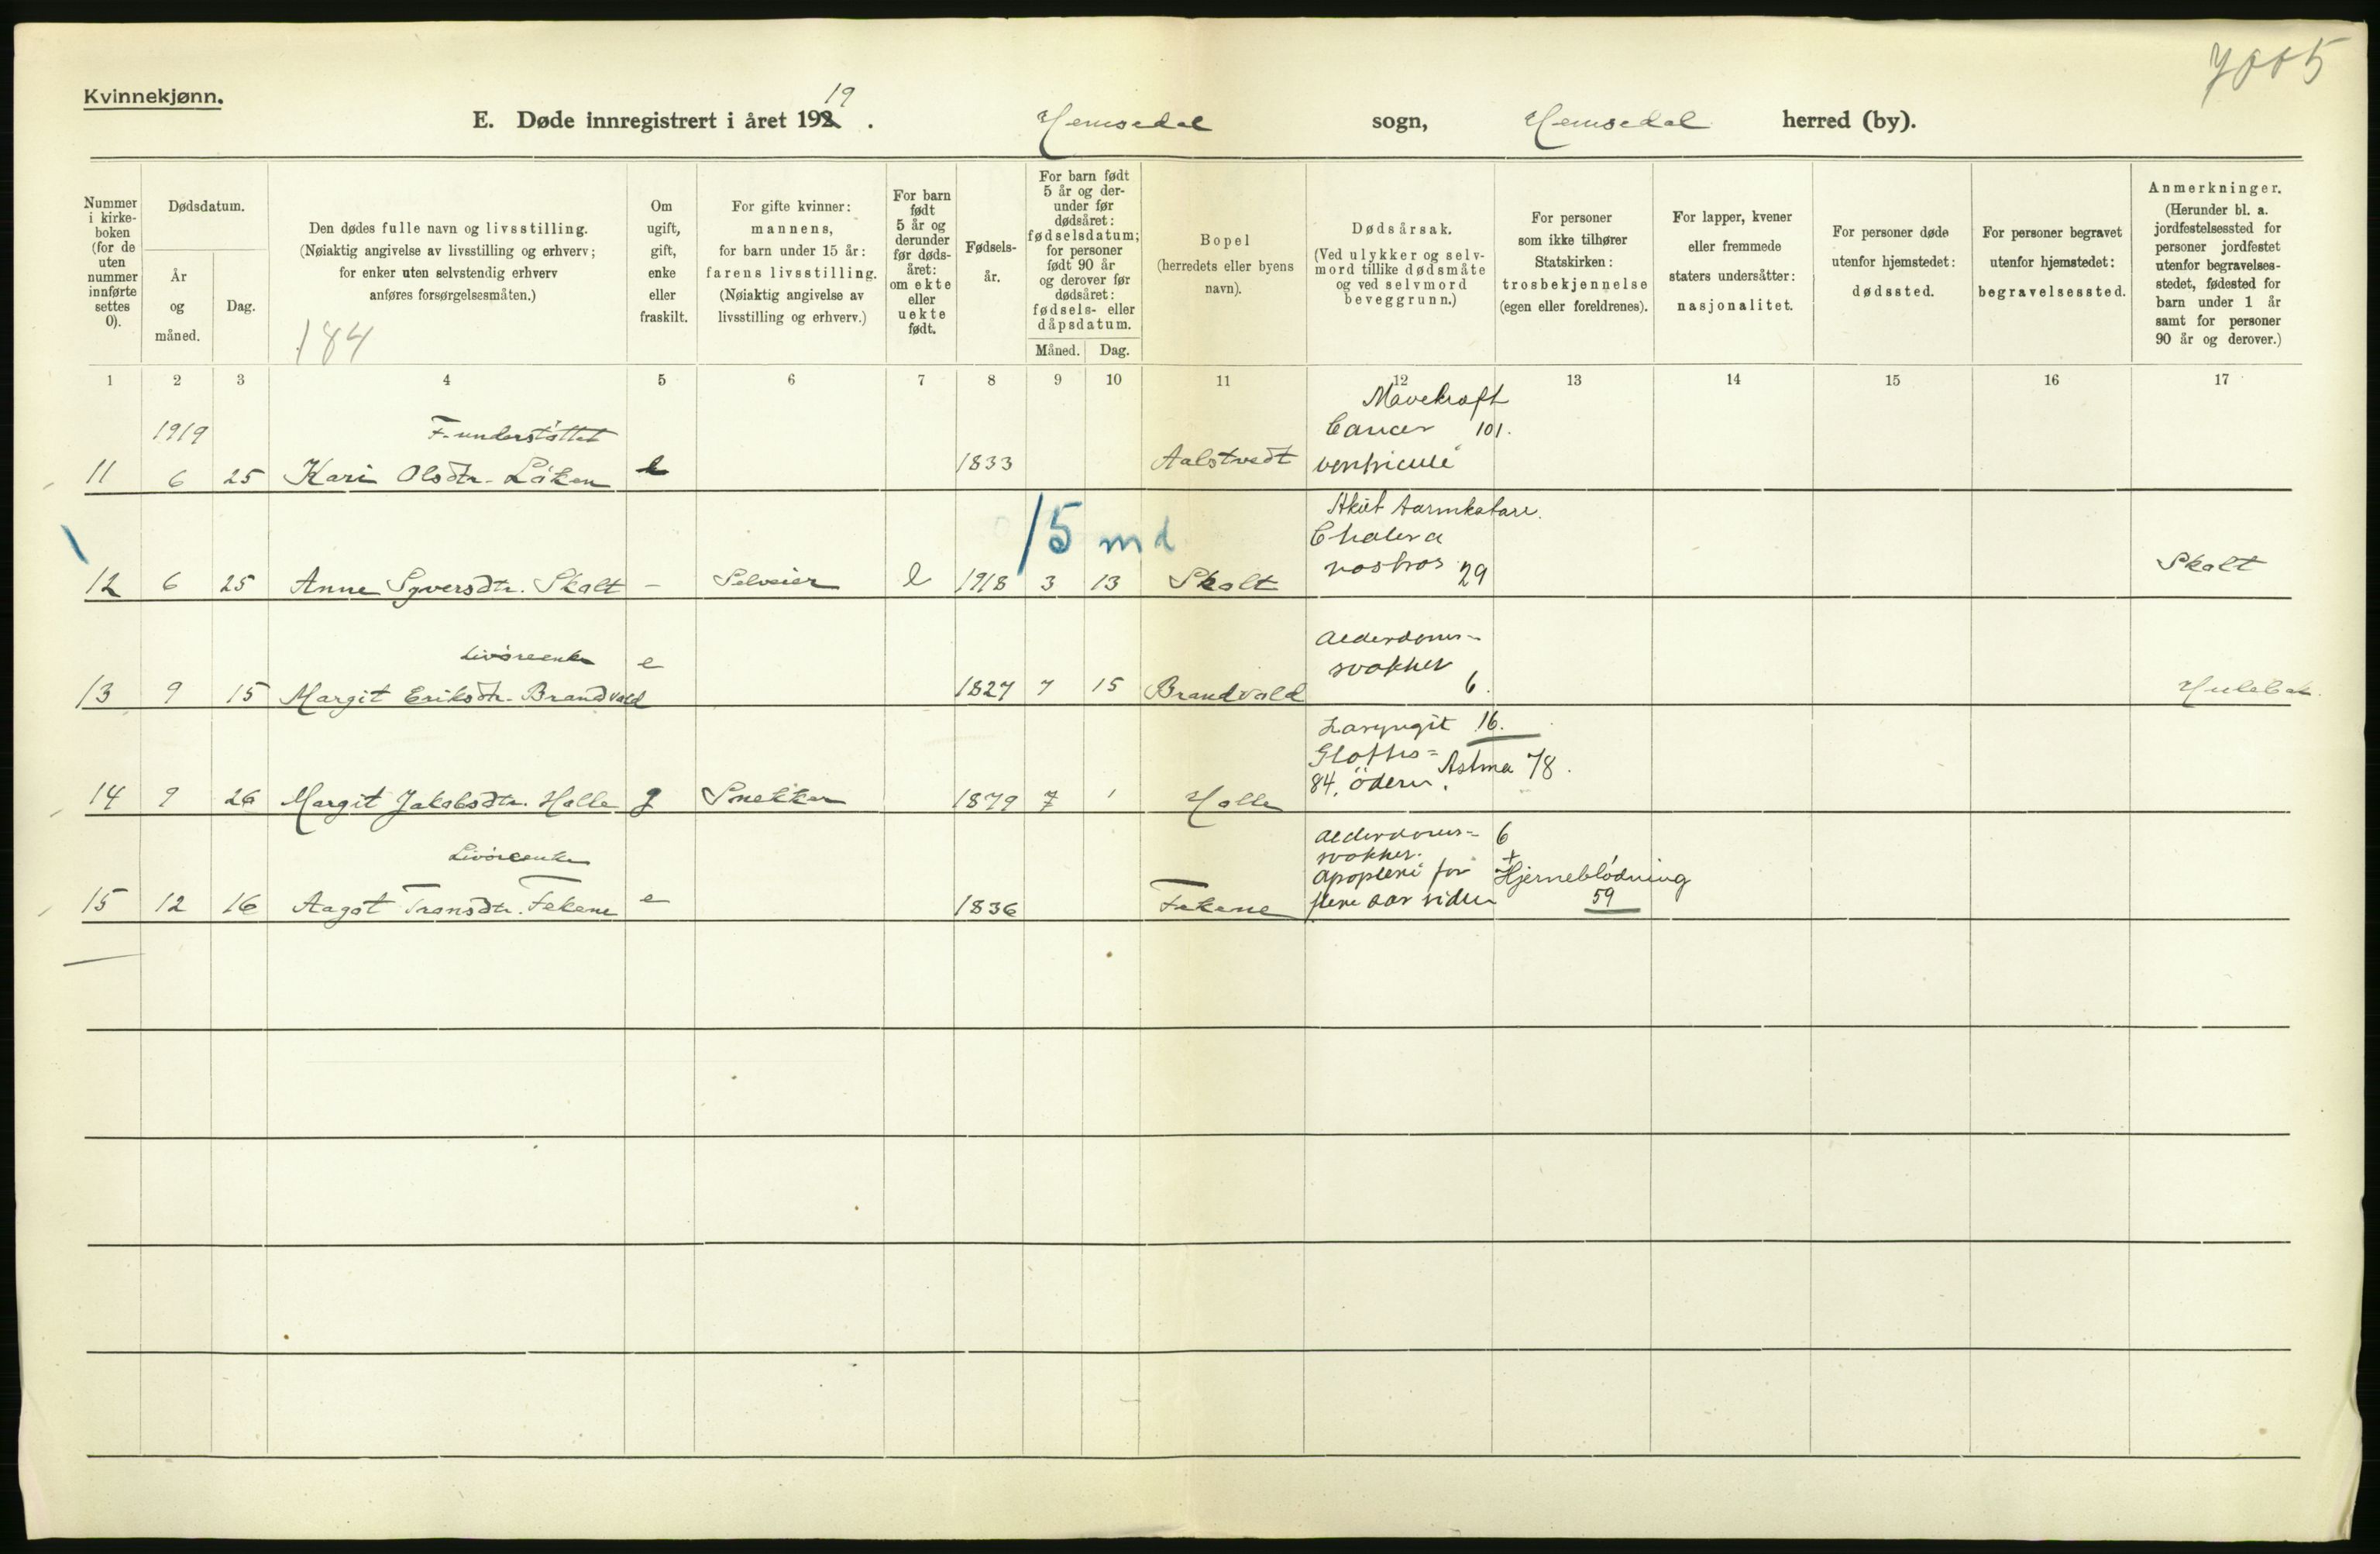 Kvinnekjønn.
E. Døde innregistrert i året 192 19.
Hemsedal sogn, Hemsedal herred (by).
Nummer i kirkeboken (for de uten nummer innførte settes 0).
Dødsdatum.
År og måned.
Dag.
Den dødes fulle navn og livsstilling.
(Nøiaktig angivelse av livsstilling og erhverv;
for enker uten selvstendig erhverv
anføres forsørgelsesmåten.)
184
Om ugift, gift, enke eller fraskilt.
For gifte kvinner:
mannens,
for barn under 15 år:
farens livsstilling.
(Nøiaktig angivelse av
livsstilling og erhverv.)
For barn født 5 år og derunder før dødsåret: om ekte eller uekte født.
Fødselsår.
For barn født 5 år og derunder før dødsåret: fødselsdatum; for personer født 90 år og derover før dødsåret: fødsels- eller dåpsdatum.
Måned.
Dag.
Bopel
(herredets eller byens
navn).
Dødsårsak.
(Ved ulykker og selvmord tillike dødsmåte og ved selvmord beveggrunn.)
For personer
som ikke tilhører
Statskirken:
trosbekjennelse
(egen eller foreldrenes).
For lapper, kvener
eller fremmede
staters undersåtter:
nasjonalitet.
For personer døde
utenfor hjemstedet:
dødssted.
For personer begravet
utenfor hjemstedet:
begravelsessted.
Anmerkninger.
(Herunder bl. a.
jordfestelsessted for
personer jordfestet
utenfor begravelsesstedet, fødested for
barn under 1 år
samt for personer
90 år og derover.)
1 2 3 4 5 6 7 8 9 10 11 12 13 14 15 16 17
1919
F. understøttet
Mavekræft
Cancer 101.
ventriculi
11 6 25 Kari Olsdtr. Løken e 1833 Aalstvedt
15 md
Akut tarmkatarr.
Cholera
nostras 29
12 6 25 Anne Syversdtr. Skolt - Selveier e 1918 3 13 Skolt Skolt
Livøreenke
Alderdoms-
svakhet 6.
13 9 15 Margit Eriksdtr. Brandvold e 1827 7 15 Brandvold
Laryngit 16.
Glottis=
84. ödem. Astma 78.
14 9 26 Margit Jakobsdtr. Holle g Snekker 1879 7 1 Holle
Livøreenke
Alderdoms= 6
svakhet. +
apoplexi for Hjerneblödning
flere aar siden 59
15 12 16 Aagot Transdtr. Fekene e 1836 Fekene